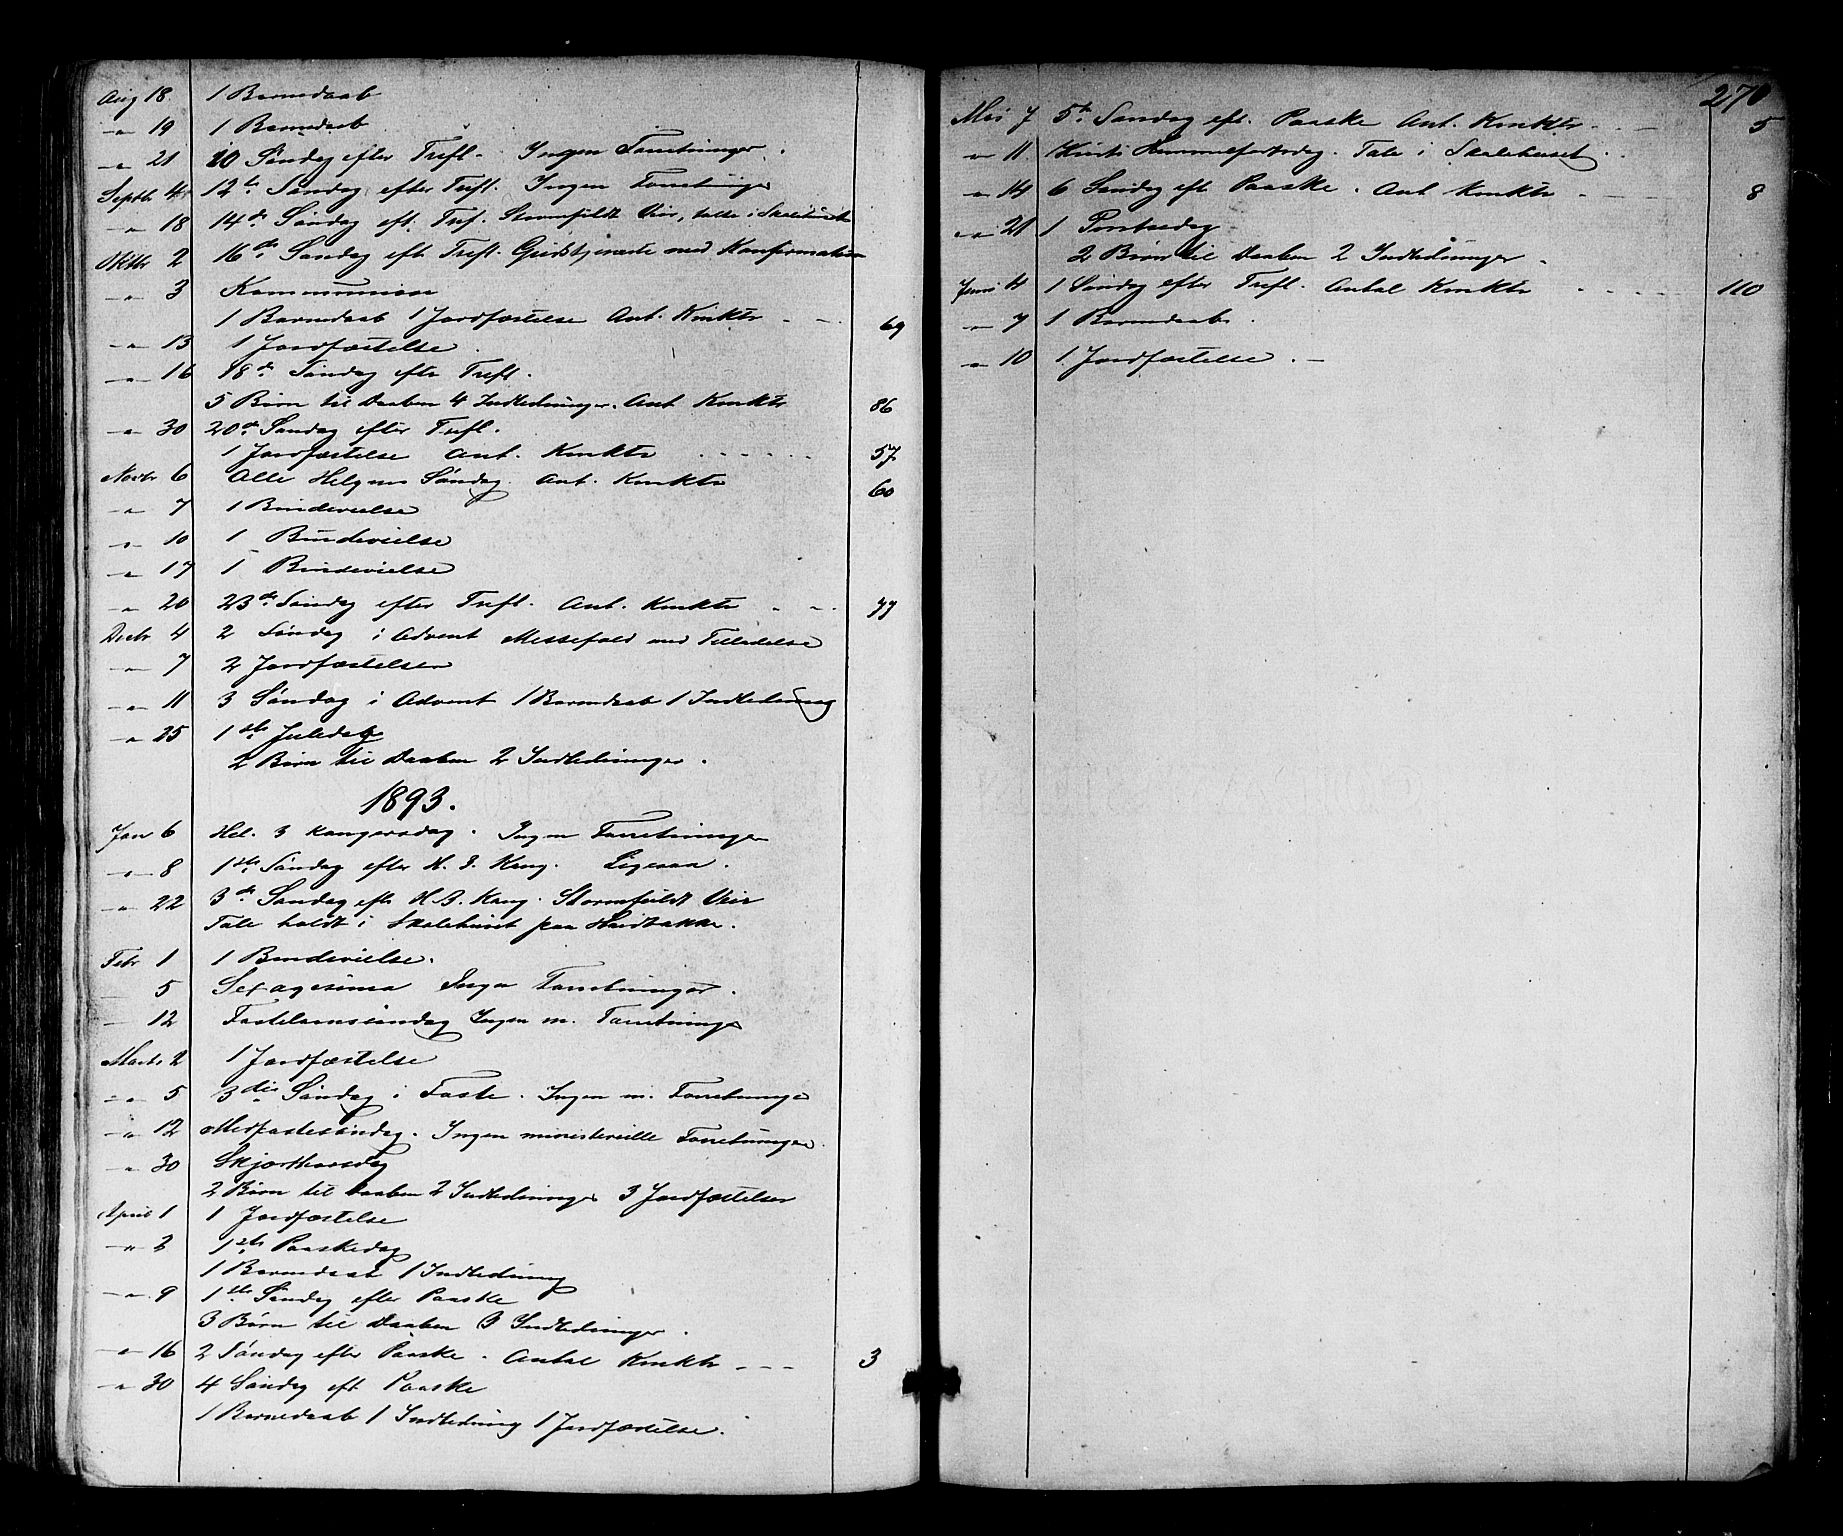 Aug 18. 1 Barnedaab
—"— 19 1 Barnedaab
—"— 21 10 Søndag efter Trefl. Ingen Forretninger.
Septbr 4 12te Søndag efter Trefl. Ingen Forretninger
—"— 18 14de Søndag eft. Tref. Stormfuldt Veir, talte i Skolehuset
Oktbr 2 16de Søndag eft Trefl. Gudstjeneste med Konfirmation
—"— 3 Kommunion
1 Barnedaab 1 Jordfæstelse Ant. Knktr — — 69
—"— 13 1 Jordfæstelse.
—"— 16 18de Søndag eftr Trefl.
5 Børn til Daaben 4 Indledninger. Ant Knktr 86
—"— 30 20de Søndag efter Trefl.
1 Jordfæstelse Ant. Knktr . . . . . . 57
Novbr 6 Alle Helgens Søndag. Ant. Knktr 60
—"— 7 1 Brudevielse
—"— 10 1 Brudevielse
—"— 17 1 Brudevielse
—"— 20 23de Søndag efter Trefl. Ant. Knktr . . . 77
Decbr 4 2 Søndag i Advent Messefald med Tilladelse
—"— 7 2 Jordfæstelser
—"— 11 3 Søndag i Advent 1 Barnedaab 1 Indledning
—"— 25 1ste Juledag
2 Børn til Daaben 2 Indledninger.
1893.
Jan 6 Hel. 3 Kongersdag. Ingen Forretninger
—"— 8 1ste Søndag efter H. 3. Kong. Ligesaa.
—"— 22 3de Søndag eftr H. 3. Kong. Stormfuldt Veir
Tale holdt i Skolehuset paa Haidbakke.
Febr 1 1 Brudevielse.
— 5 Sexagesima Ingen Forretninger.
— 12 Fastelavnssøndag Ingen m. Forretninger
Marts 2 1 Jordfæstelse
—"— 5 3die Søndag i Faste. Ingen m. Forretninger
—"— 12 Midfastesøndag. Ingen ministerielle Forretninger.
—"— 30 Skjærthorsdag
2 Børn til Daaben 2 Indledninger 3 Jordfæstelser
April 1 1 Jordfæstelse
—"— 2 1ste Paaskedag
1 Barnedaab 1 Indledning
—"— 9 1ste Søndag efter Paaske
3 Børn til Daaben 3 Indledninger.
—"— 16 2 Søndag efter Paaske. Antal Knktr — — — 3
—"— 30 4 Søndag eft Paaske
1 Barnedaab 1 Indledning 1 Jordfæstelse.
270
Mai 7 5te Søndag eft. Paaske Ant. Knktr. — — 5
—"— 11. Kristi Himmelfartsdag. Tale i Skolehuset.
—"— 14 6 Søndag eft Paaske. Ant Knktr — — — 8
—"— 21 1 Pintsedag
2 Børn til Daaben 2 Indledninger.
Juni 4 1 Søndag efter Trefl. Antal Knktr . . . . . 110
—"— 7 1 Barnedaab.
—"— 10 1 Jordfæstelse. —